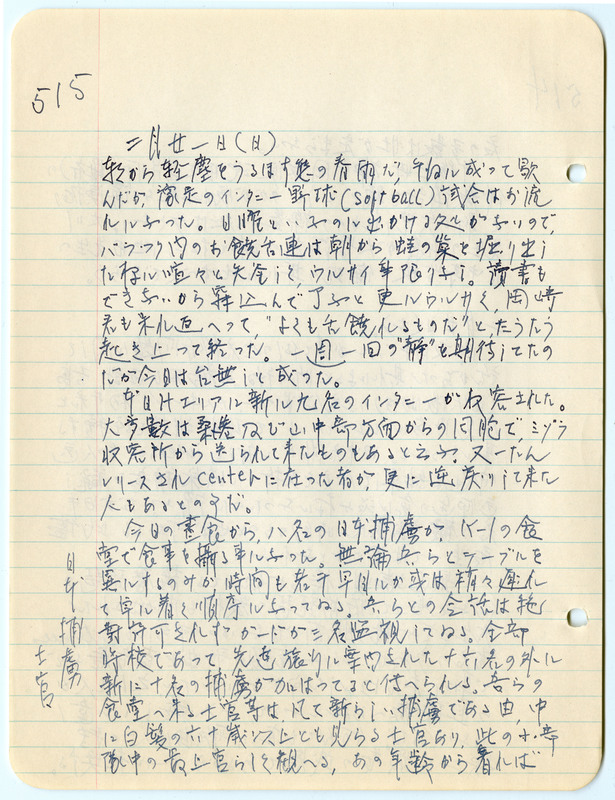 515
二月廿一日(日)
朝から軽塵をうるほす態の春雨だ、午後に成って歇
んだが、豫定のインターニー野球(softball)試合はお流
れになった。日曜といふのに出かける処がないので、
バラック内のお饒舌連は朝から蛙の巣を掘り出し
た様に喧々と矢釜しく、ウルサイ事限りなし。讀書も
できないから寝込んで了ふと更にウルサく、岡崎
君も呆れ返へって、"よくも舌饒れるものだ"とたうたう
起き上って終った。一週一回の"静"を期待してたの
だが今日は台無しと成った。
本日Hエリアに新に九名のインターニーが収容された。
大多数は桑港及び山中部方面からの同胞で、ミゾラ
収容所から送られて来たものもあると云ふ、又一たん
レリースされcenterに在った者が更に逆戻りして来た
人もあるとの事だ。
今日の昼食から、八名の日本捕虜が、K-1の食
堂で食事を攝る事になった。無論吾らとテーブルを
異にするのみか時間も若干早目にか或は稍々遅れ
て早に着く順序になってゐる。吾らとの会話は絶
對許可されず ガードが三名監視してゐる。全部
将校であって、先達 に案内された十六名の外に
新に十名の捕虜が加はってると傳へられる。吾らの
食堂へ来る士官等は、凡て新らしい捕虜である由、中
に白髪の六十歳以上とも見らる士官あり、此の
隊中の最上官らしく観へる、あの年齢から着れば
日本捕虜
士官